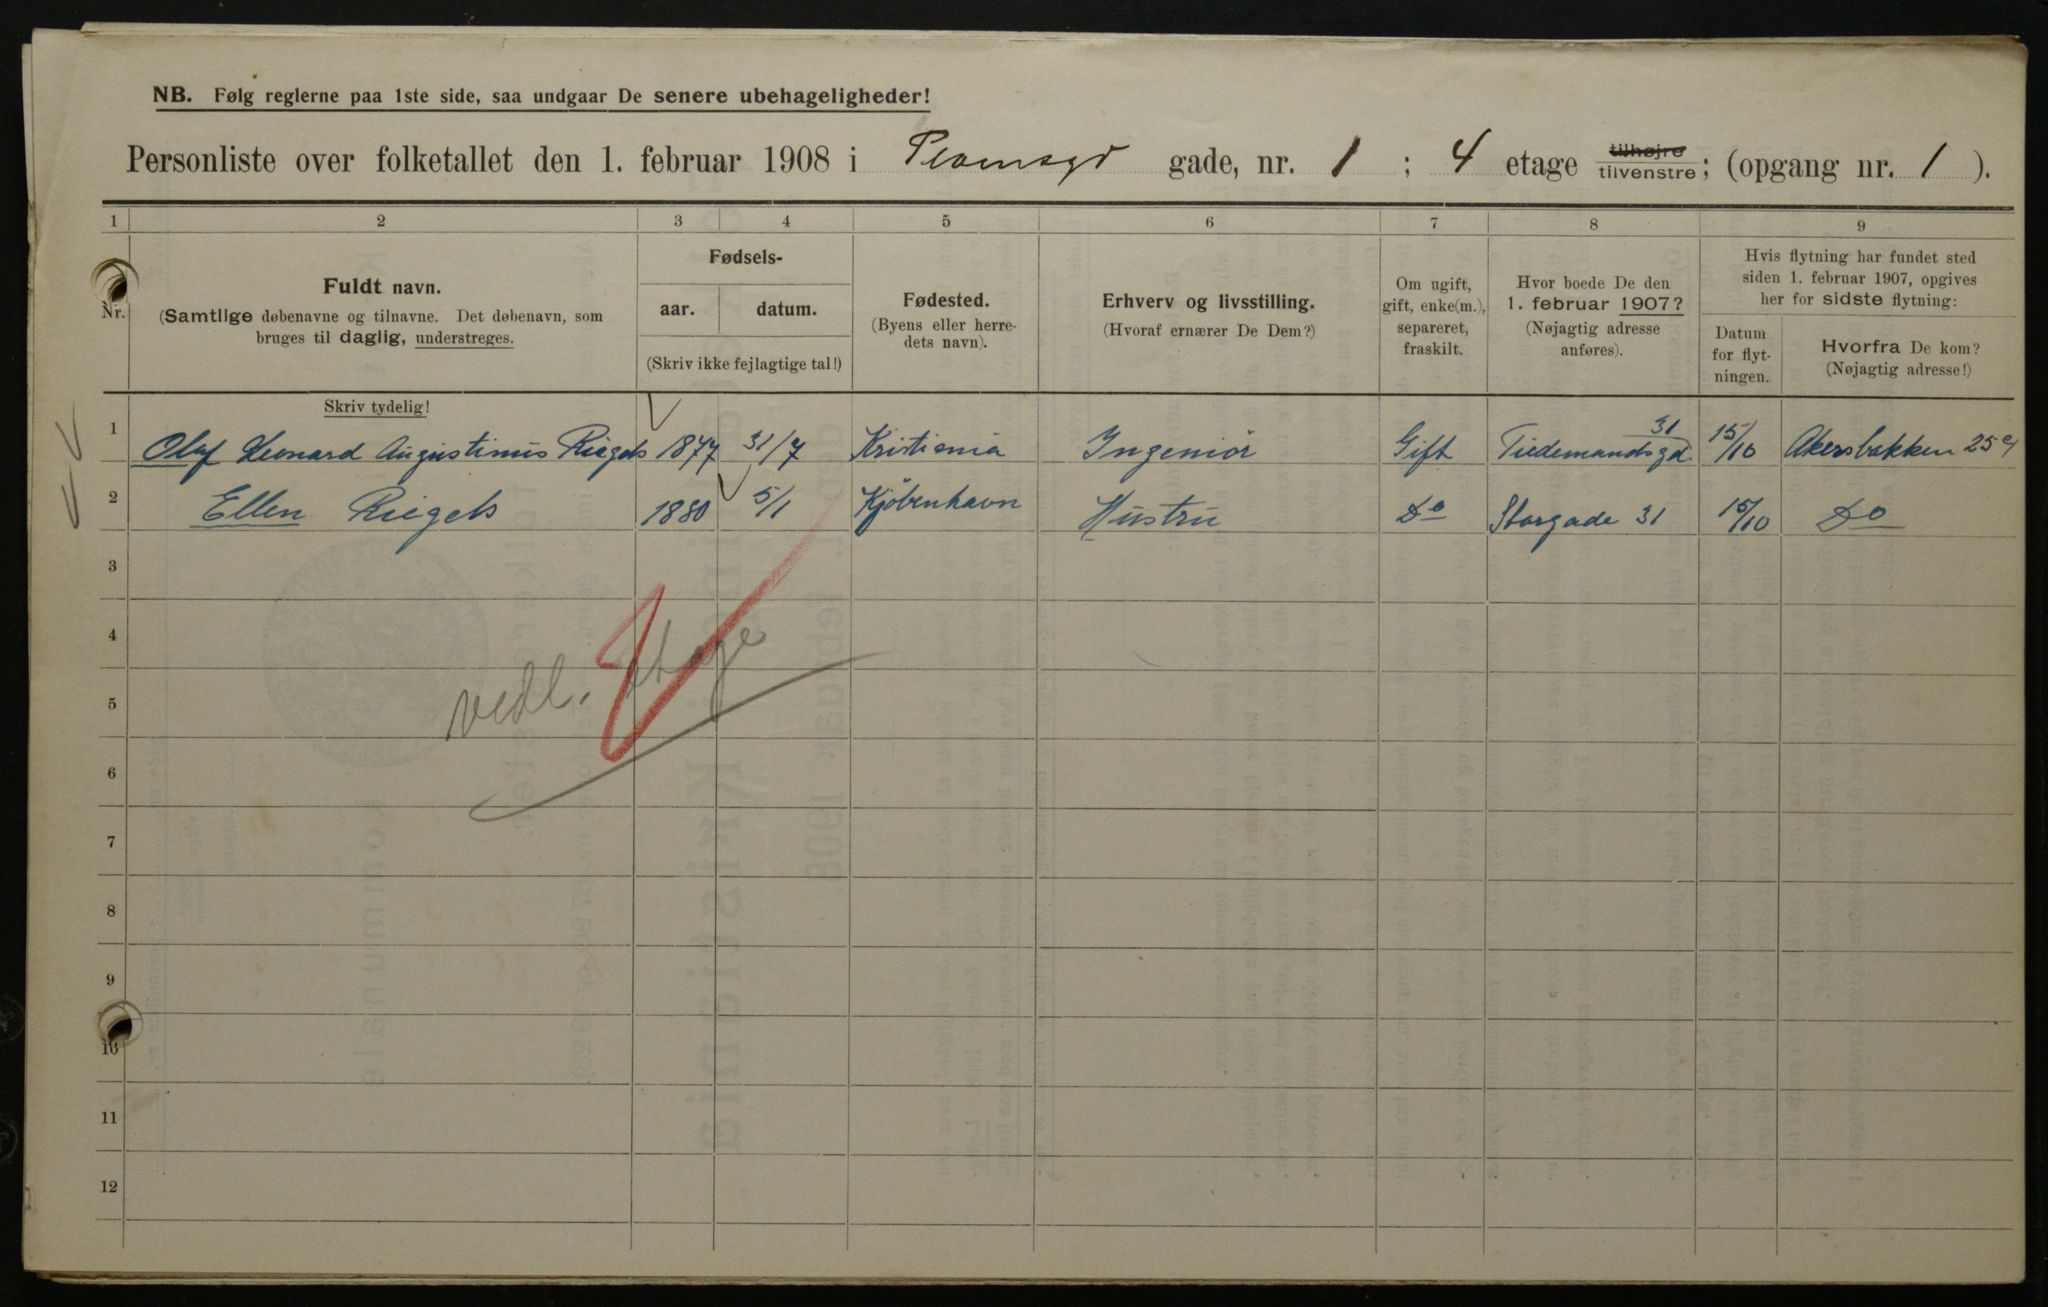 NB. Følg reglerne paa 1ste side, saa undgaar De senere ubehageligheder!
Personliste over folketallet den 1. februar 1908 i Plomsgd gade, nr. 1 ; 4 etage tilhøjre tilvenstre; (opgang nr. 1 ).
1 2 3 4 5 6 7 8 9
Nr.
Fuldt navn.
(Samtlige døbenavne og tilnavne. Det døbenavn, som
bruges til daglig, understreges.
Skriv tydelig!
Fødsels-
aar. datum.
(Skriv ikke fejlagtige tal!)
Fødested.
(Byens eller herre-
dets navn).
Erhverv og livsstilling.
(Hvoraf ernærer De Dem?)
Om ugift,
gift, enke(m.),
separeret,
fraskilt.
Hvor boede De den
1. februar 1907?
(Nøjagtig adresse
anføres).
Hvis flytning har fundet sted
siden 1. februar 1907, opgives
her for sidste flytning:
Datum
for flyt-
ningen.
Hvorfra De kom?
(Nøjagtig adresse!)
1 Olaf Leonard Augustinus Riegels 1877 31/7 Kristiania Ingeniör Gift Tiedemandsgd. 31 15/10 Akersbakken 25
2 Ellen Riegels 1880 5/1 Kjöbenhavn Hustru Do Storgade 31 15/10 Do
3
4
vedl. etage
5
6
7
8
9
10
11
12